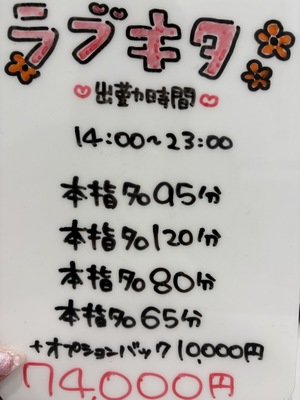 ラブキタ
出勤時間
14:00~23:00
本指名95分
本指名120分
本指名80分
本指名65分
+オプションバック10,000円
74,000円